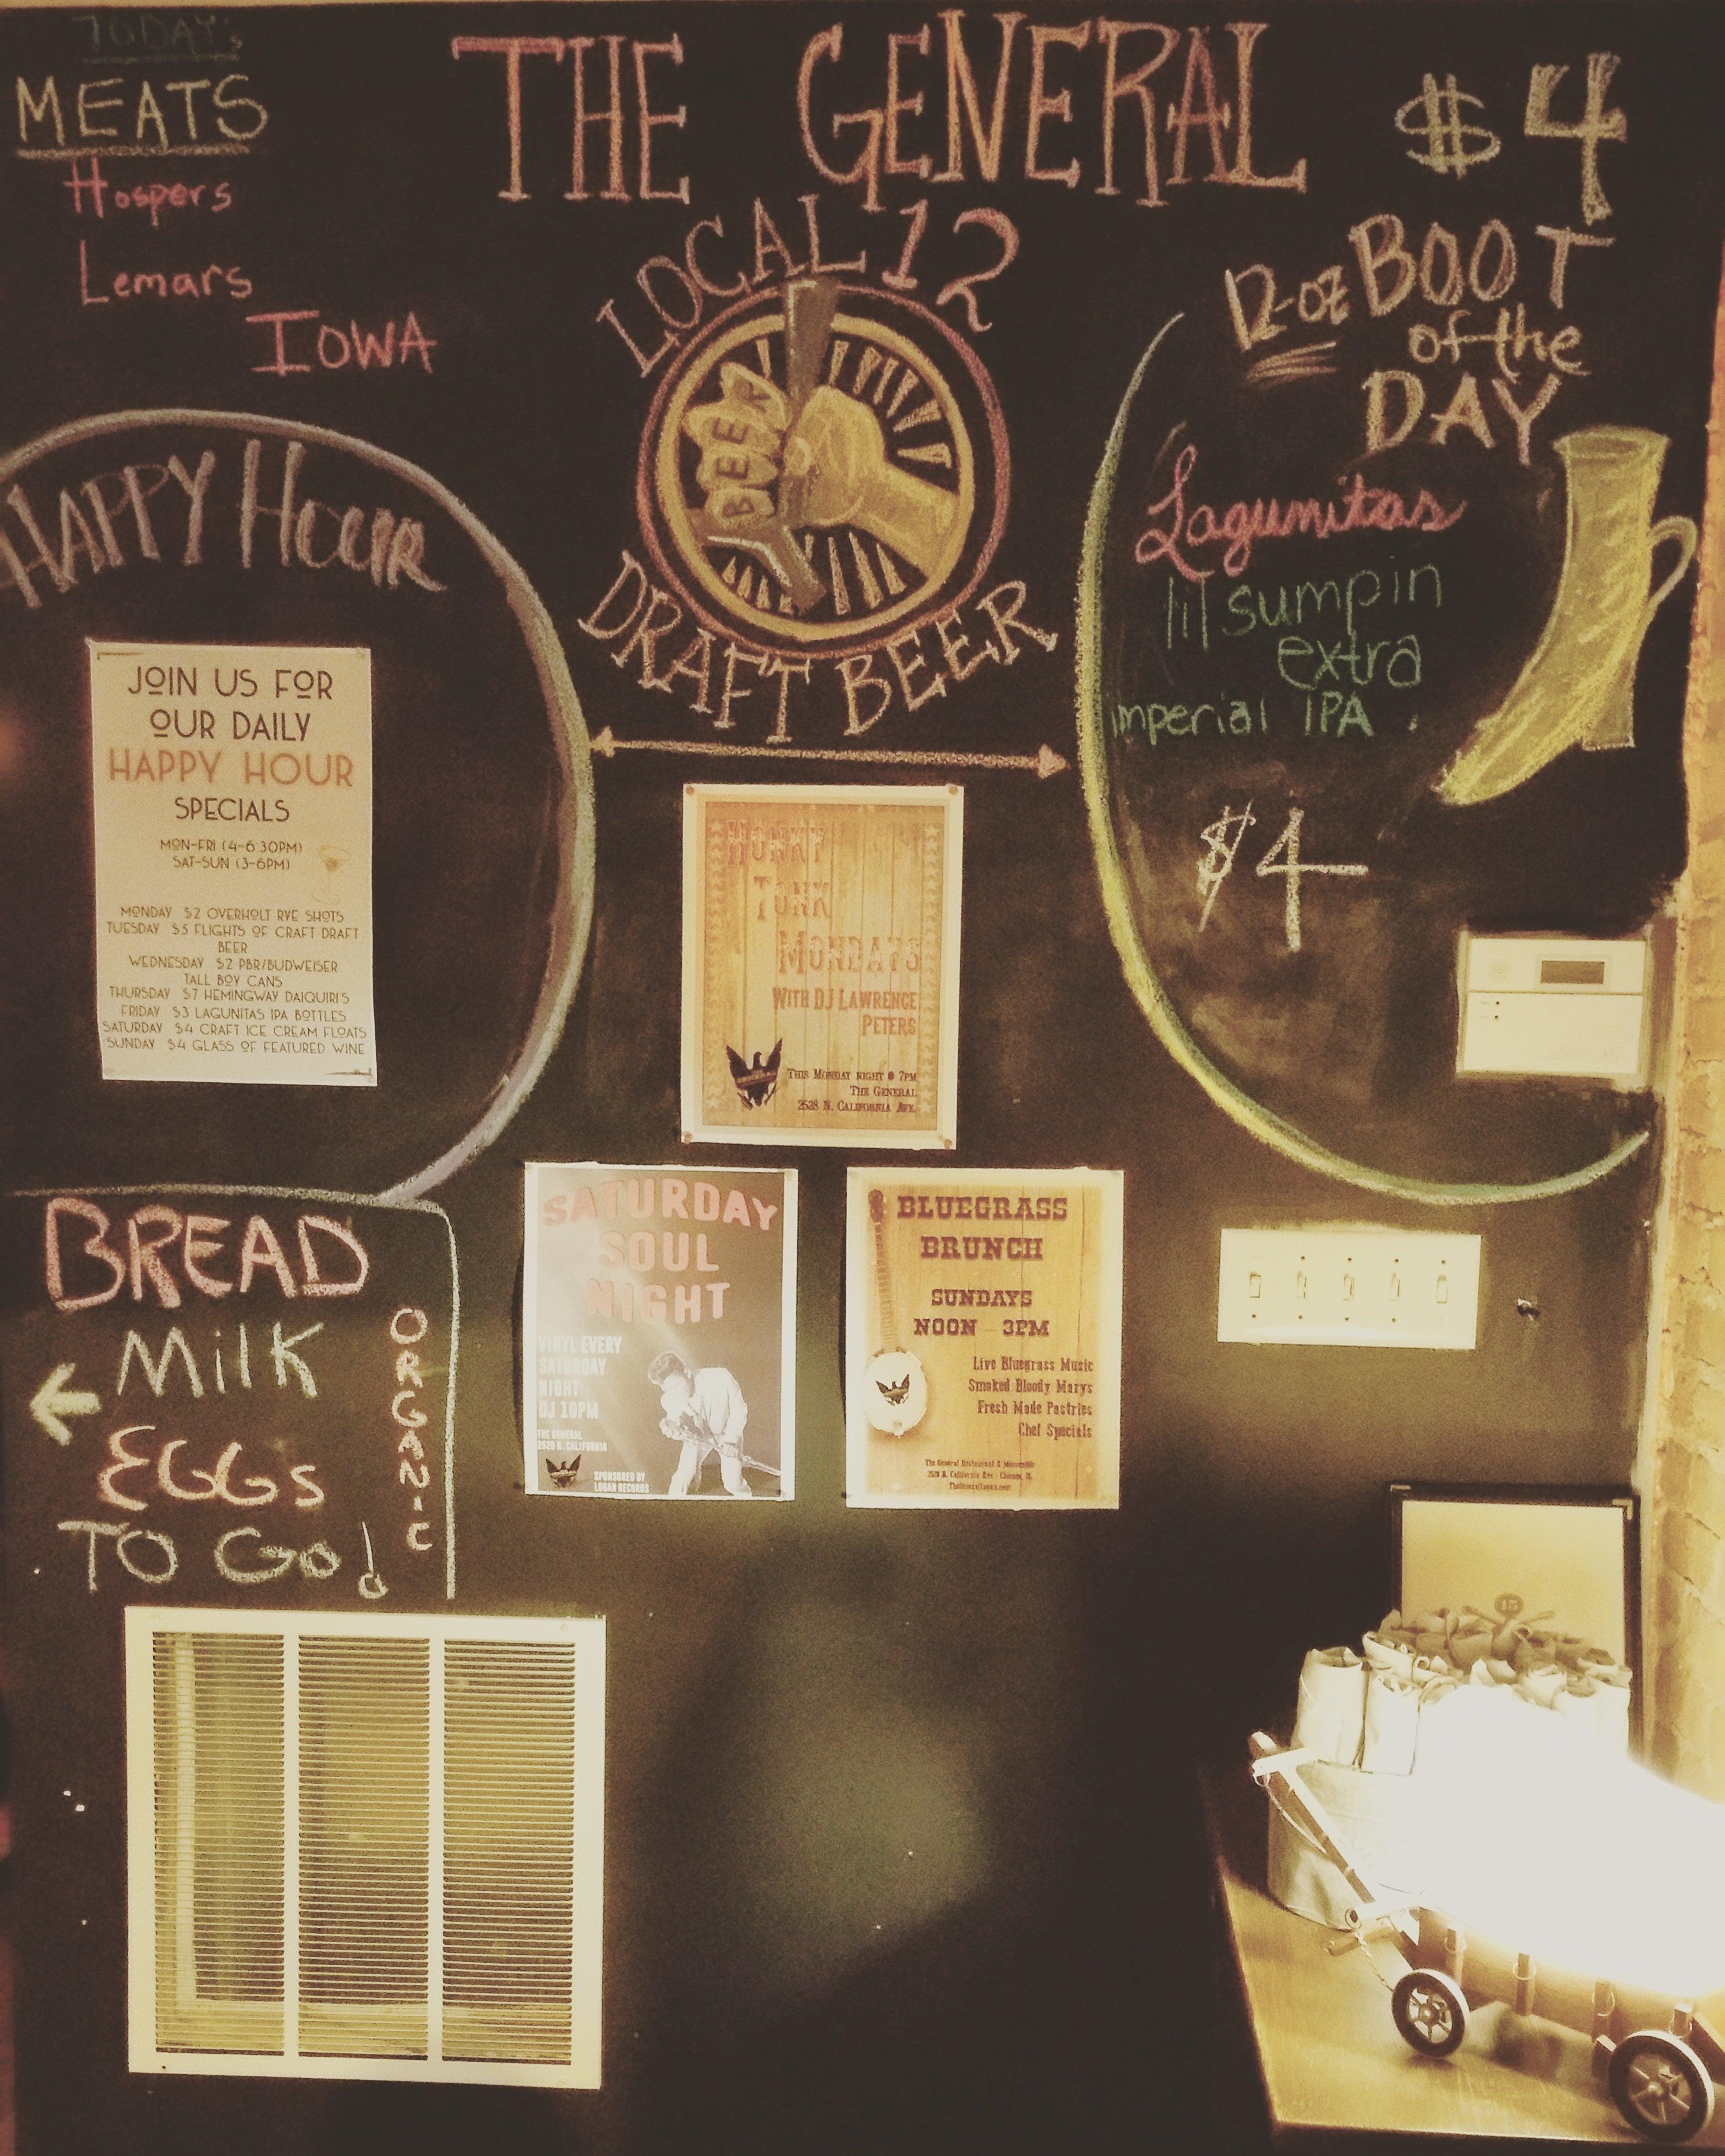 TODAY's
MEATS
Hospers
Lemars
IOWA
THE GENERAL
LOCAL 12
BEER
DRAFT BEER
$4
12-oz BOOT
of the
DAY
Lagunitas
lil sumpin
extra
imperial IPA
$4
HAPPY HOUR
JOIN US FOR
OUR DAILY
HAPPY HOUR
SPECIALS
MON-FRI (4-6:30PM)
SAT-SUN (3-6PM)
MONDAY $2 OVERHOLT RYE SHOTS
TUESDAY $5 FLIGHTS OF CRAFT DRAFT
BEER
WEDNESDAY $2 PBR/BUDWEISER
TALL BOY CANS
THURSDAY $7 HEMINGWAY DAIQUIRI'S
FRIDAY $3 LAGUNITAS IPA BOTTLES
SATURDAY $4 CRAFT ICE CREAM FLOATS
SUNDAY $4 GLASS OF FEATURED WINE
HONKY
TONK
MONDAYS
WITH DJ LAWRENCE
PETERS
THIS MONDAY NIGHT @ 7PM
THE GENERAL
2528 N. CALIFORNIA AVE.
SATURDAY
SOUL
NIGHT
VINYL EVERY
SATURDAY
NIGHT
DJ 10PM
THE GENERAL
2528 N. CALIFORNIA
SPONSORED BY
LOGAN RECORDS
BLUEGRASS
BRUNCH
SUNDAYS
NOON - 3PM
Live Bluegrass Music
Smoked Bloody Marys
Fresh Made Pastries
Chef Specials
The General Restaurant &
2528 N. California Ave. Chicago, IL
BREAD
MilK
EGGs
TO Go!
ORGANIC
15